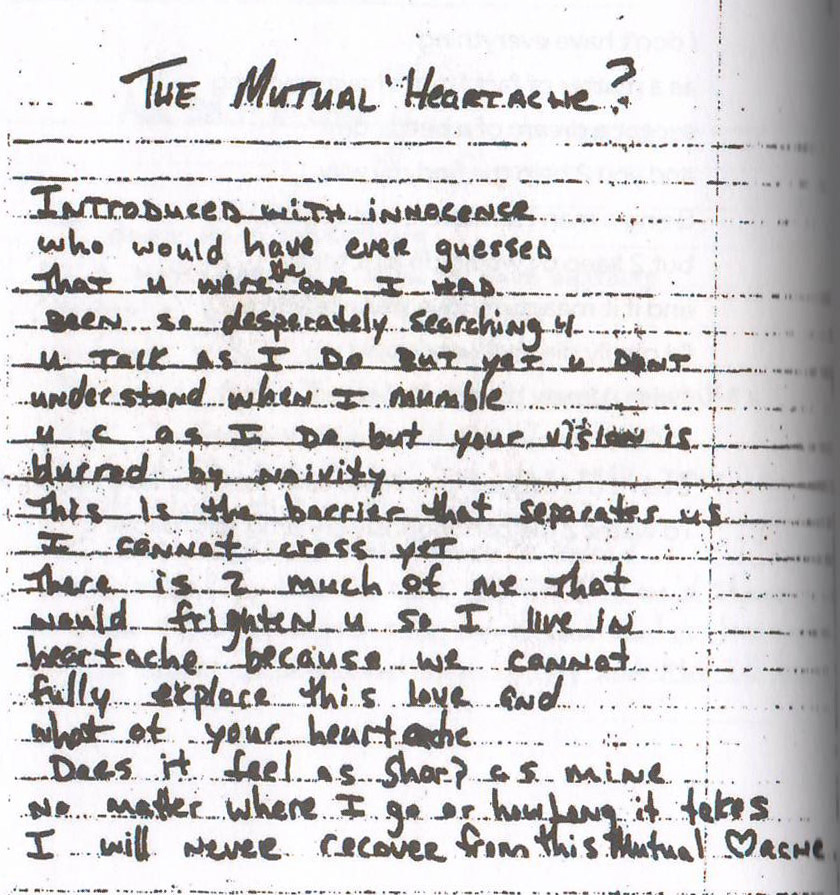 THE MUTUAL HEARTACHE?
INTRODUCED WITH INNOCENSE
who would have ever guessed
That u were the one I HAD
BEEN so desperately searching 4
u TALK AS I DO BUT yet u DONT
understand when I mumble
u c as I Do but your vision is
blurred by naivity
This is the barrier that separates us
I cannot cross yet
There is 2 much of me that
would frighten u so I live IN
heartache because we cannot
fully explore this love and
what of your heartache
Does it feel as sharp as mine
No matter where I go or how long it takes
I will never recover from this Mutual ♡ACHE